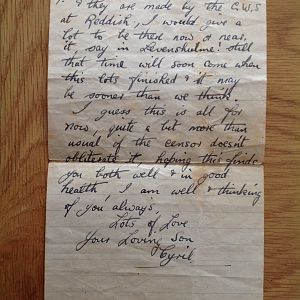 & they are made by the C.W.S
at Reddish, I would give a
lot to be there now or near
it, say in Levenshulme! Still
that time will soon come when
this lots finished & it may
be sooner than we think.
I guess this is all for
now, quite a bit more than
usual if the censor doesn't
obliterate it, hoping this finds
you both well & in good
health, I am well & thinking
of you always,
Lots of Love
Your Loving Son
Cyril